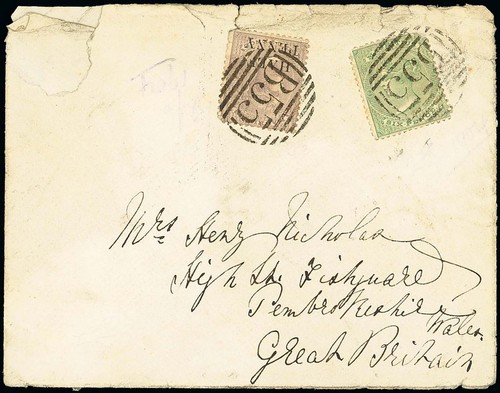 HALF
PENNY
B53
B53
Mrs Henry Nicholas
High St. Fishguard
Pembrokeshire
Wales.
Great Britain